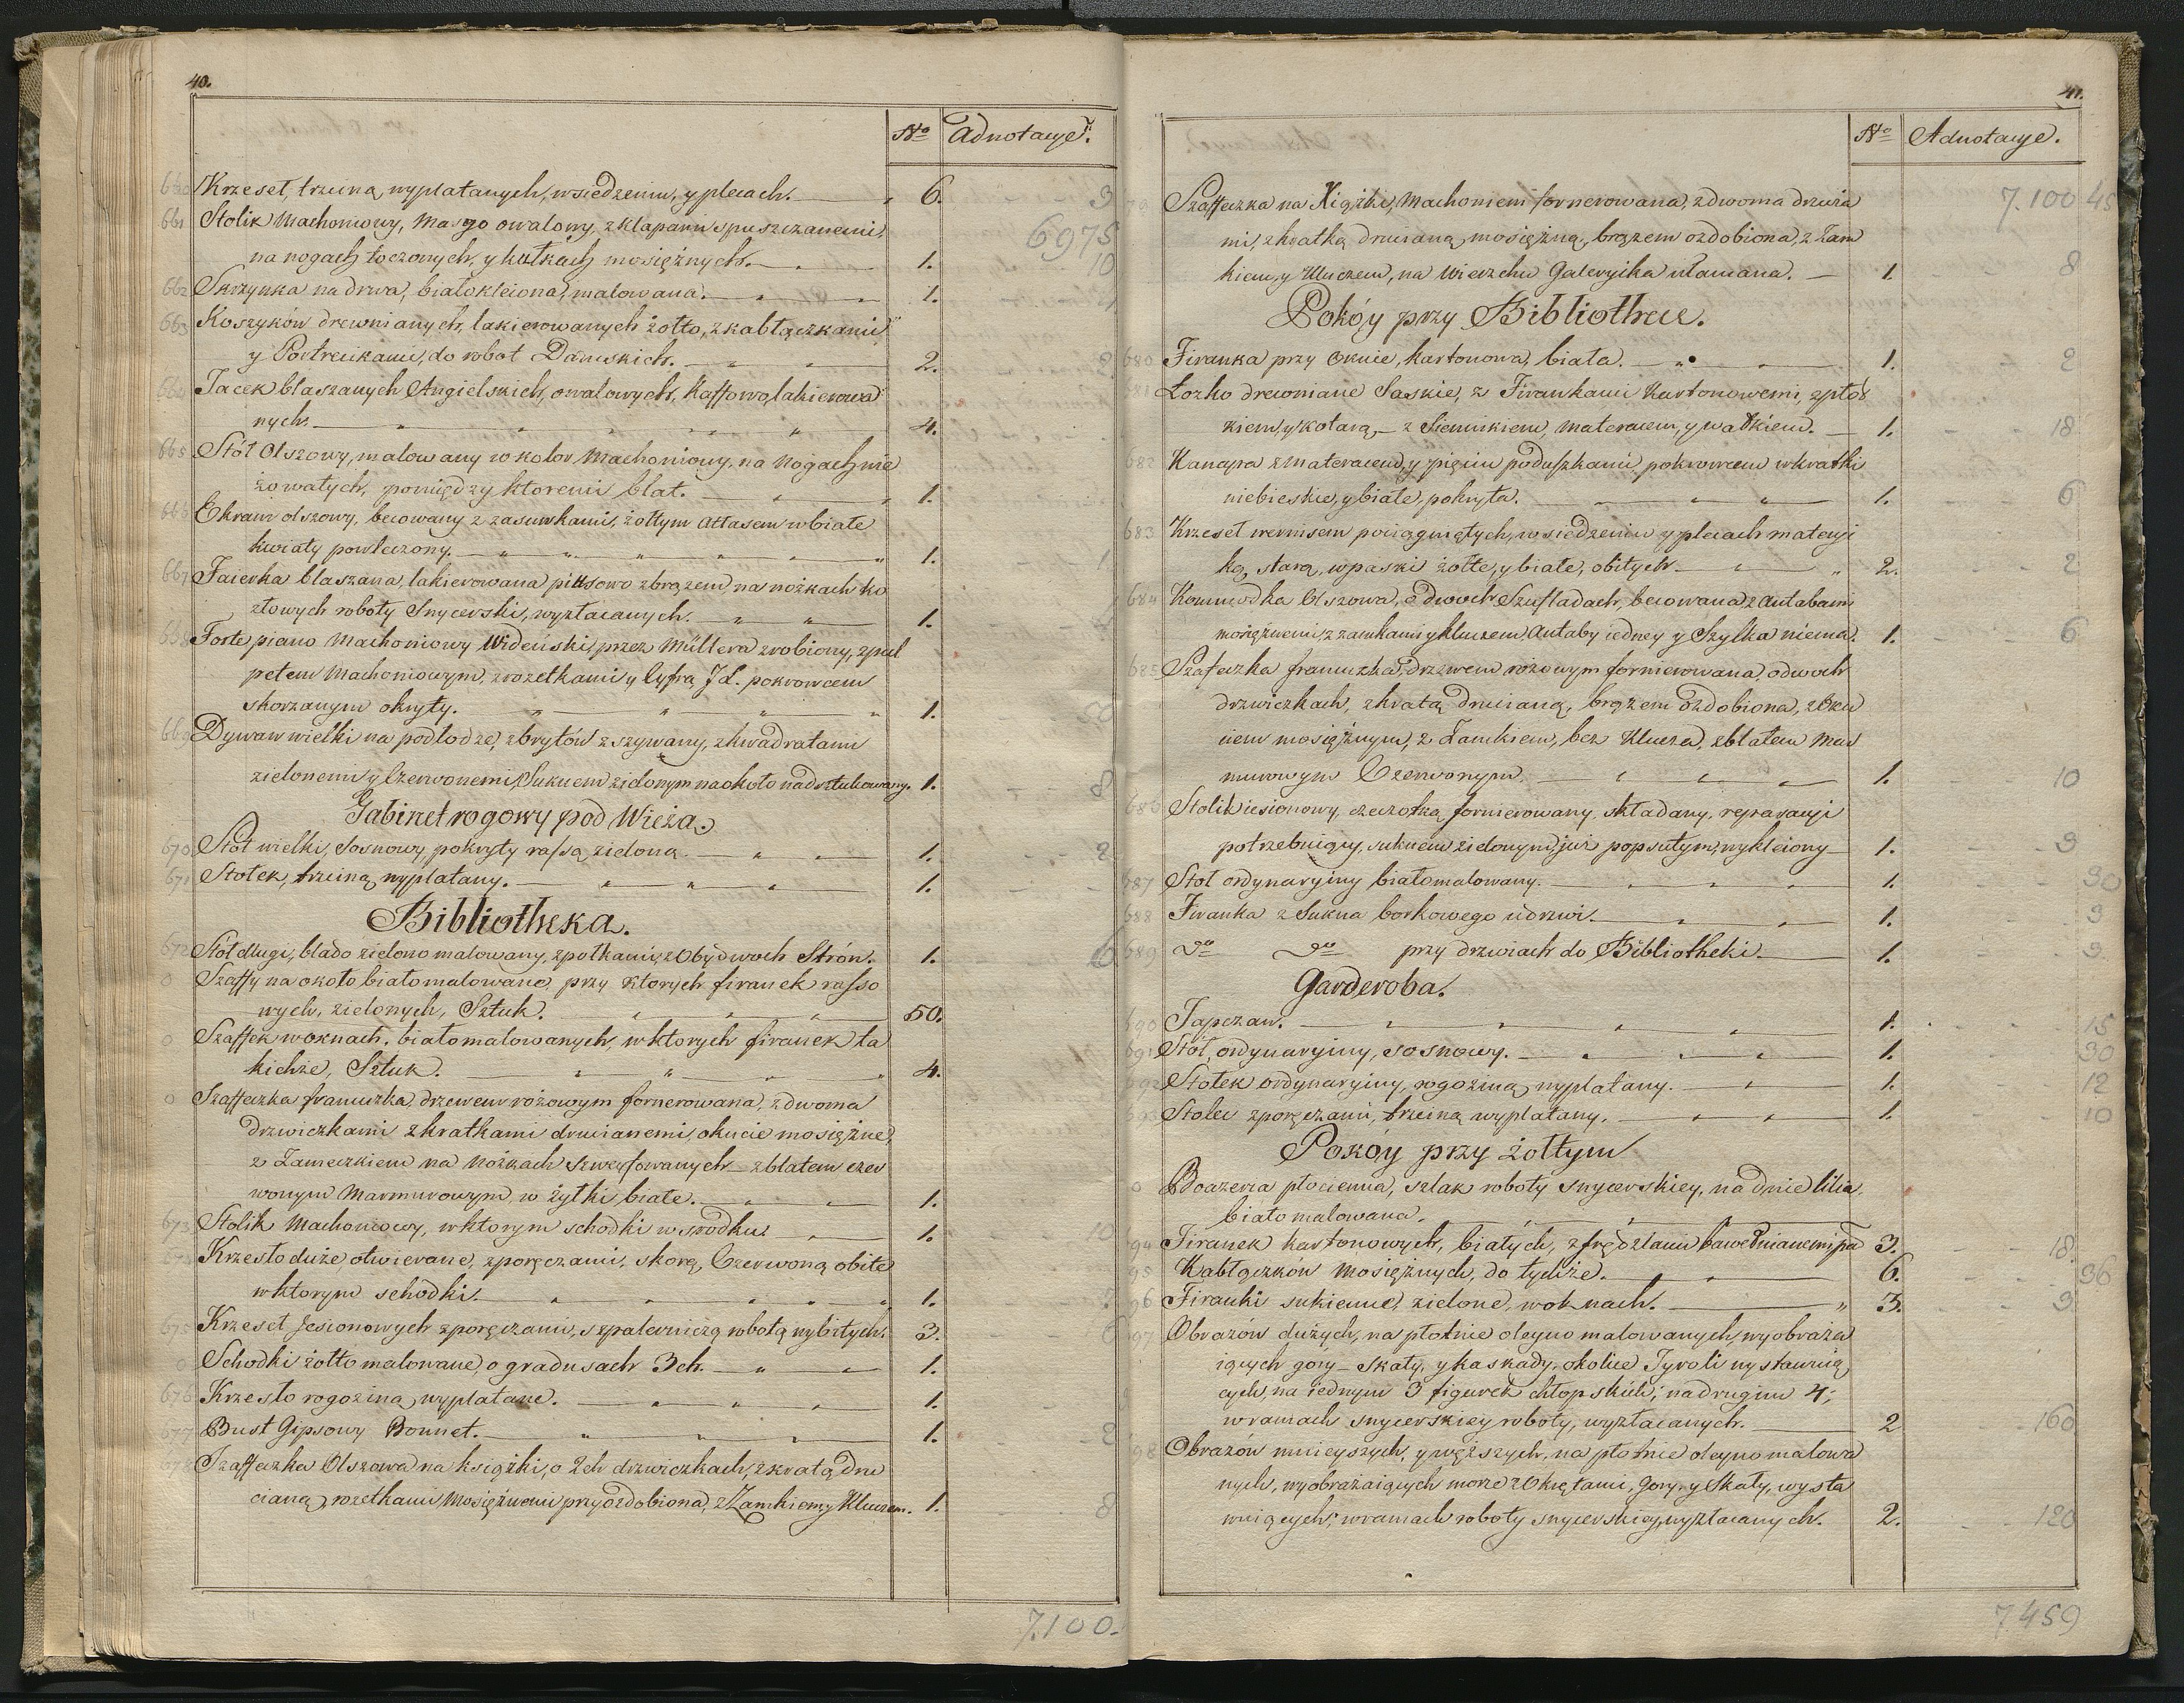 40.
No Adnotacye.
660 Krzeseł, trzciną wyplatanych, w siedzeniu, y plecach. 6. 3
661 Stolik Machoniowy, Masyo owalowy, z klapami spuszczanemi, 6975
na nogach toczonych, y kułkach mosiężnych. 1. 10
662 Skrzynka na drwa, biało kleiona, malowana. 1.
663 Koszyków drewnianych, lakierowanych żołto, z kabłączkami
y Portrecikami, do robot Damskich. 2. 2
664 Tacek blaszanych Angielskich, owalowych, Kaffowo, lakierowa
nych. 4.
665 Stół Olszowy, malowany w kolor Machoniowy, na Nogach nie
żowatych, pomiędzy ktoremi blat. 1.
666 Ekran olszowy, becowany z zasuwkami, żołtym Attasem w białe
kwiaty powleczony. 1. 1
667 Faierka blaszana, lakierowana piksowo z brązem, na nożkach ko
złowych roboty Snycerski, wyzłacanych. 1.
668 Forte piano Machoniowy Widenski, przez Müllera zrobiony, z pul
petem Machoniowym, z rozetkami y Cyfrą J L. pokrowcem
skorzanym okryty. 1. 50
669 Dywan wielki na podłodze, z brytów zszywany, z kwadratami
zielonemi y Czerwonemi, Suknem zielonym naokoło nadsztukowany. 1. 8
Gabinet rogowy pod Wieżą.
670 Stoł wielki, Sosnowy, pokryty rassą zieloną. 1. 2
671 Stołek, trzciną wyplatany. 1.
Bibliotheka.
672 Stół długi, blado zielono malowany, z połkami z Obydwoch Strón. 1. 6
0 Szaffy na około biało malowane, przy ktorych firanek rasso
wych, zielonych, Sztuk. 50.
0 Szaffek w oknach, biało malowanych, w ktorych firanek ta
kichże, Sztuk. 4.
0 Szaffeczka francuzka, drzewem różowym fornerowana, z dwoma
drzwiczkami z kratkami drucianemi, okucie mosiężne,
z Zameczkiem na Nóżkach szweyfowanych z blatem czer
wonym Marmurowym w żyłki białe. 1.
673 Stolik Machoniowy, w ktorym schodki w srodku. 1. 10
674 Krzesło duże, otwierane, z poręczami, skorą Czerwoną obite
w ktorym schodki. 1.
675 Krzeseł Jesionowych z poręczami, szpalerniczą robotą wybitych. 3. 6
0 Schodki żołto malowane, o gradusach 3ch. 1.
676 Krzesło rogoziną, wyplatane. 1.
677 Bust Gipsowy Bonnet. 1. 2
678 Szaffeczka Olszowa na książki, o 2ch drzwiczkach, z kratą dru
cianą, rozetkami Mosiężnemi przyozdobiona, z Zamkiem y Kluczem. 1. 8
7.100.
41.
No Adnotacye.
79 Szaffeczka na Xiążki, Machoniem fornerowana, z dwoma drzwia 7.100 45
mi, z kratką drucianą mosiężną, brązem ozdobiona, z Zam
kiem, y Kluczem, na Wierzchu Galeryika ułamana. 1. 8
Pokóy przy Bibliothece.
680 Firanka przy Oknie, kartonowa, biała. 1. 2
681 Łozko drewniane Saskie, z Firankami Kartonowemi, z płot
kiem, y kotarą, z Siennikiem, materacem, y wałkiem. 1. 18
682 Kanapa z Materacem, y pięciu poduszkami pokrowcem w kratki
niebieskie, y białe, pokryta. 1. 6
683 Krzeseł wernisem pociągniętych, w siedzeniu y plecach materyi
ką, starą, w paski żołte, y białe, obitych. 2. 2
684 Kommodka Olszowa, o dwoch Szufladach, becowana z Antabami
mosiężnemi, z zamkami y kluczem, Antaby iedney y Szylka niema. 1. 6
685 Szafeczka francuzka, drzewem różowym fornierowana, o dwoch
drzwiczkach, z kratą drucianą, brązem ozdobiona, z Oku
ciem mosiężnym, z Zamkiem, bez Klucza, z blatem Mar
murowym Czerwonym. 1. 10
686 Stolik iesionowy, czeczotką fornierowany, składany, reparacyi
potrzebuiący, suknem zielonym już popsutym, wykleiony 1. 3
687 Stoł ordynaryiny biało malowany. 1. 30
688 Firanka z Sukna borkowego u drzwi. 1. 3
689 do do przy drzwiach do Bibliotheki. 1. 3
Garderoba.
690 Tapczan. 1. 15
691 Stół, ordynaryiny, sosnowy. 1. 30
692 Stołek ordynaryiny, rogoziną wyplatany. 1. 12
693 Stolec z poręczami, trzciną wyplatany. 1. 10
Pokóy przy żołtym
0 Boazerza płocienna, szlak roboty snycerskiey, na dnie lilia
biało malowana.
94 Firanek kartonowych, białych, z frędzlami bawełnianemi, pa 3. 18
95 Kabłączków Mosiężnych, do tychże. 6. 36
96 Firanki sukienne, zielone, w oknach. 3. 3
97 Obrazów dużych, na płotnie oleyno malowanych, wyobraża
iących gory Skały, y kaskady, okolice Tyroli wystawuią
cych, na iednym 3 figurek chłopskich; na drugim 4;
w ramach snycerskiey roboty, wyzłacanych. 2 160
98 Obrazów mnieyszych, y węższych, na płotnie oleyno malowa
nych, wyobrażaiących morze z Okrętami, Gory, y Skały, wysta
wuiących, w ramach roboty snycerskiey, wyzłacanych. 2. 120
7459